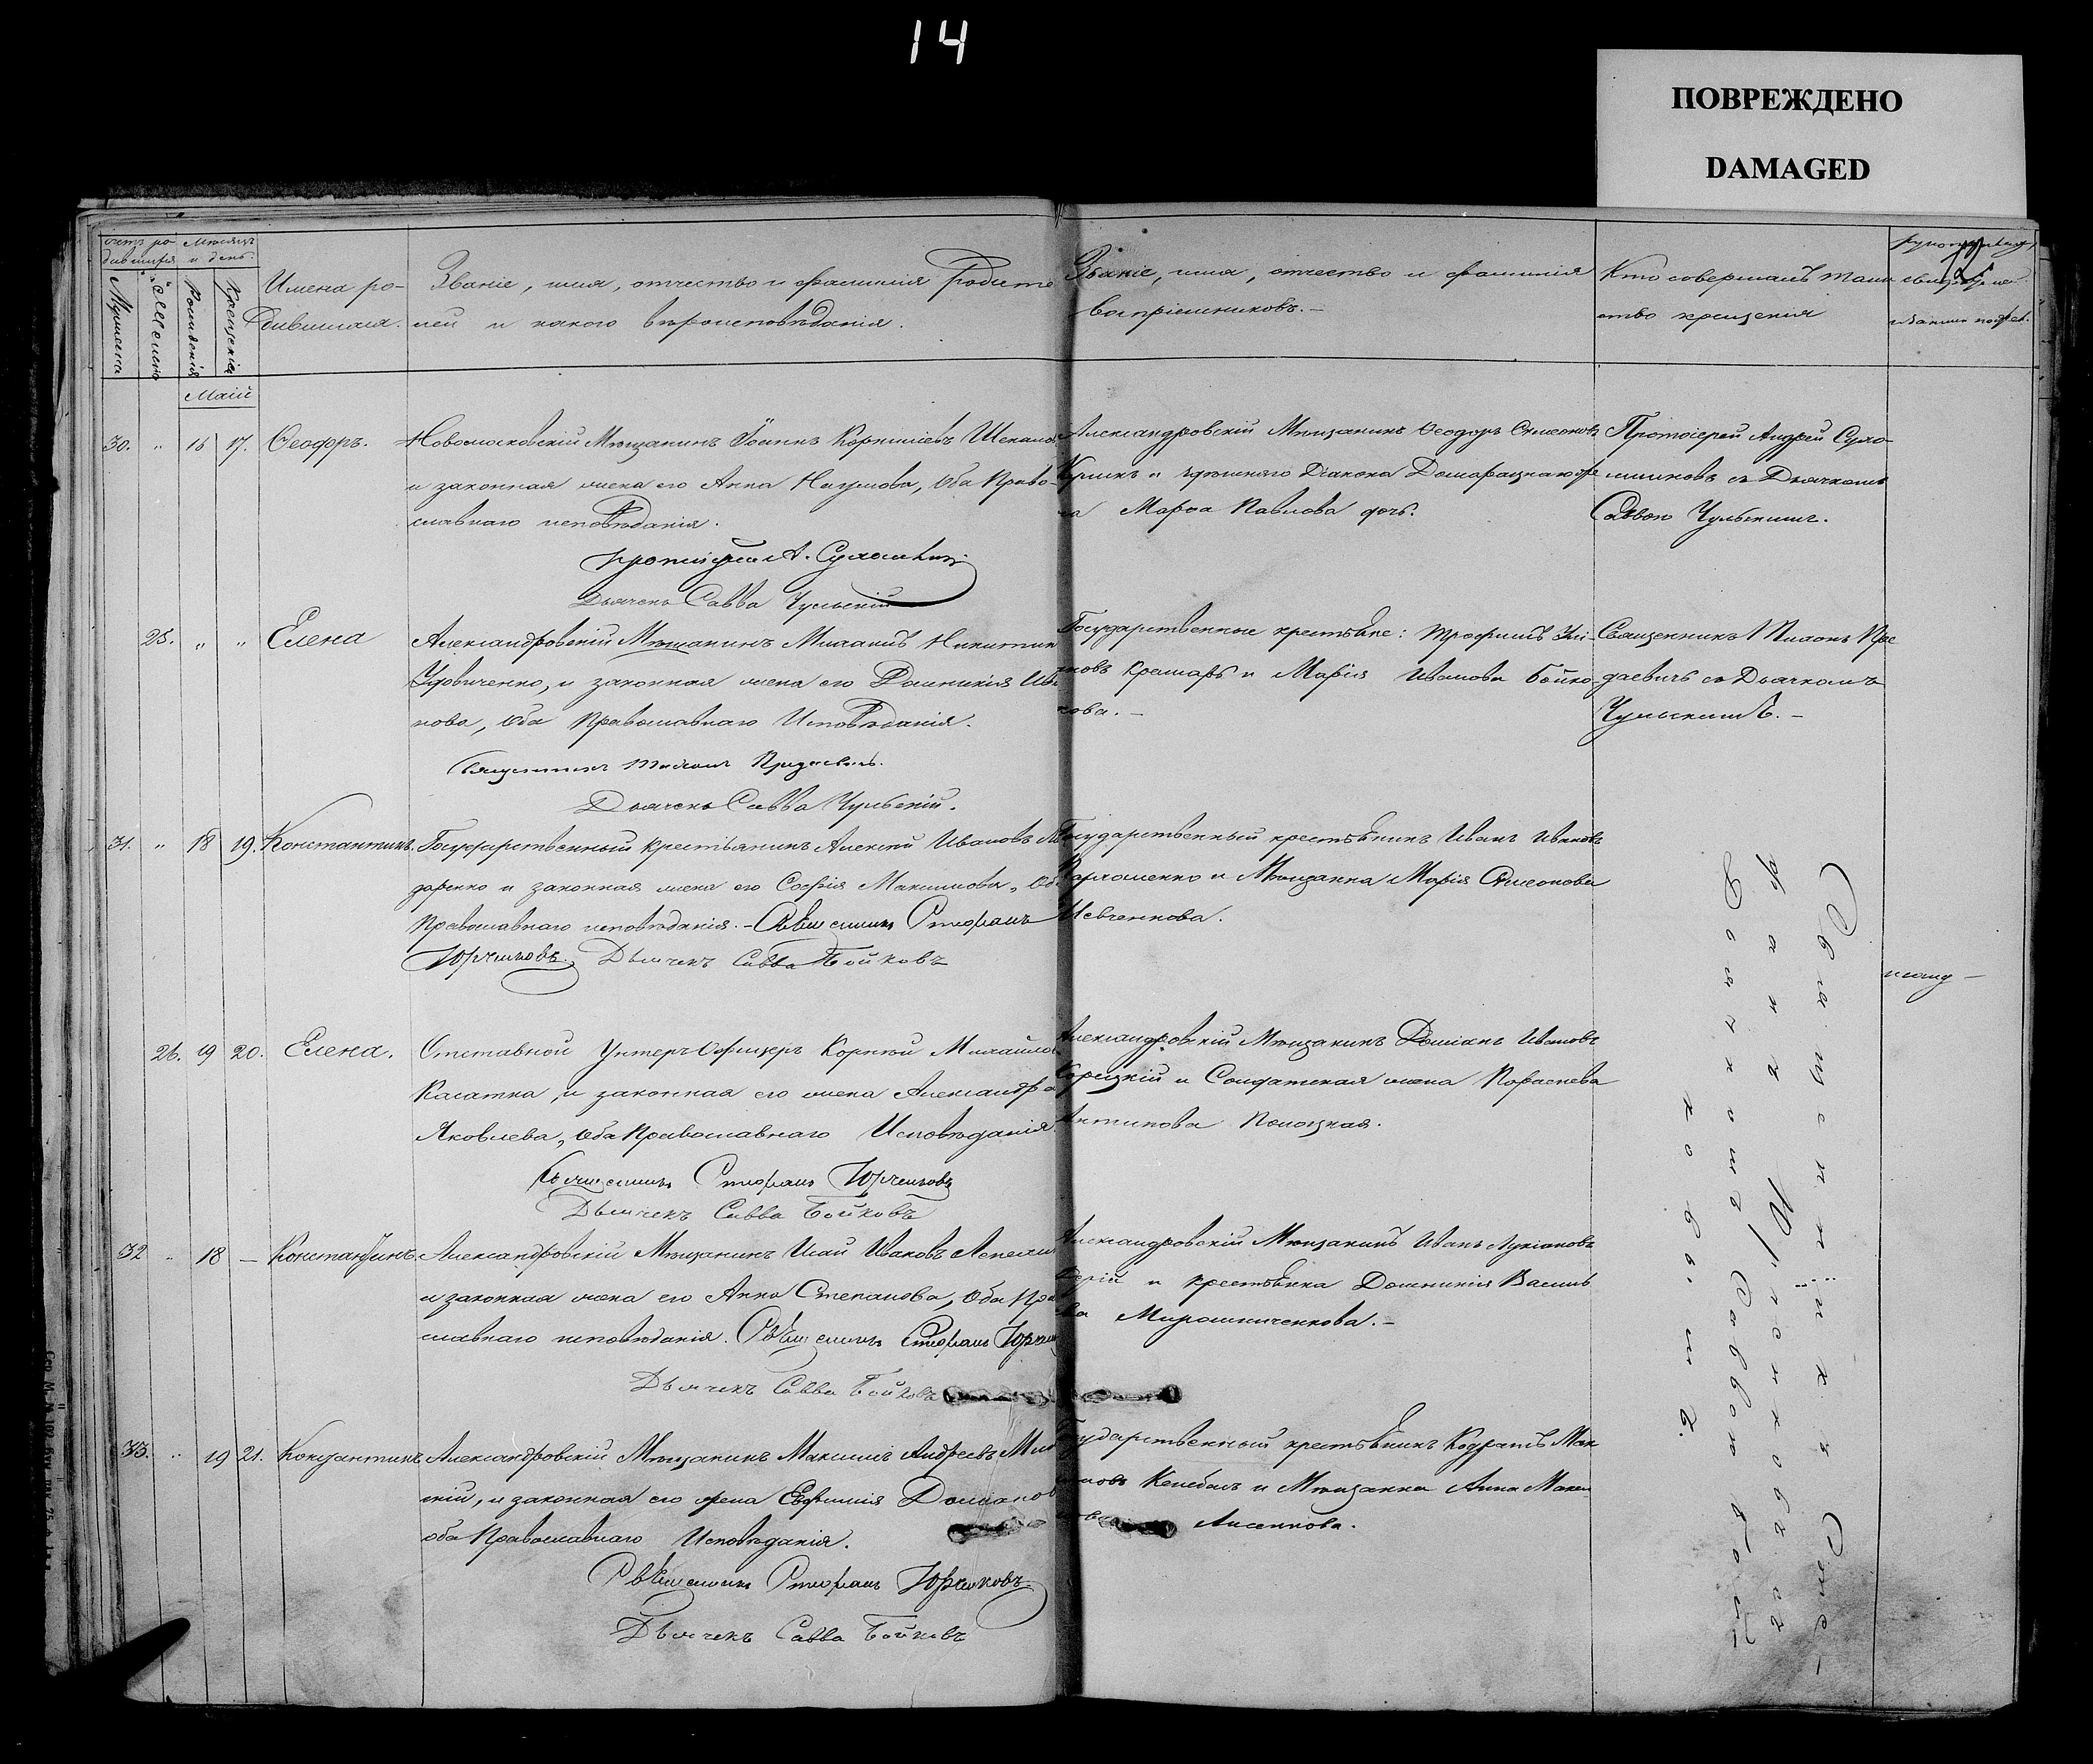 14
ПОВРЕЖДЕНО
DAMAGED
Счетъ ро-
дившихся
Мѣсяцъ
и день.
Мужеска
Женска
Рожденія
Крещенія
Имена ро-
дившихся.
Званіе, имя, отчество и фамилія родите
лей и какого вѣроисповѣданія.
Званіе, имя, отчество и фамилія
воспріемниковъ.-
Кто совершалъ таин
ство крещенія
Маій
30. " 16 17. Ѳеодоръ.
Новомосковскій Мѣщанинъ Іоаннъ Корниліевъ
и законная жена его Анна Наумова, оба Право-
славнаго исповѣданія.
Протоіерей А. Сухомлин
Дьячекъ Савва Чульскій
Александровскій Мѣщанинъ Ѳеодоръ Симеоновъ
и здѣшняго Діакона
Марѳа Павлова дочь.
Протоіерей Андрей Сухо-
млиновъ съ Дьячкомъ
Саввою Чульскимъ.
25. " " Елена
Александровскій Мѣщанинъ Михаилъ Никитин
Удовиченко, и законная жена его Домникія Ива
нова, оба Православнаго Исповѣданія.
Священникъ Тихонъ Придаевичъ.
Дьячекъ Савва Чульскій.
Государственные крестьяне: Трофимъ
Крамарь и Марія Иванова Бойко
кова.-
Священникъ Тихонъ При
даевичъ съ Дьячкомъ
Чульскимъ.-
31. " 18 19. Константинъ.
Государственный крестьянинъ Алексѣй Ивановъ
даренко и законная жена его Софія Максимова, Об
Православнаго исповѣданія.- Священникъ Стефанъ
Юрченковъ. Дьячекъ Савва Бойковъ
Государственный крестьянинъ Иванъ Ивановъ
Пархоменко и Мѣщанка Марія Симеонова
Шевченкова.
26. 19 20. Елена.
Отставной Унтеръ-Офицеръ Корнѣй Михайлов
Касатка, и законная его жена Александра
Яковлева, оба Православнаго Исповѣданія.
Священникъ Стефанъ Юрченковъ
Дьячекъ Савва Бойковъ
Александровскій Мѣщанинъ Даміанъ Ивановъ
Корецкій и Солдатская жена Параскева
Антипова
32 " 18 - Константинъ.
Александровскій Мѣщанинъ Исай Ивановъ
и законная жена его Анна Степанова, Оба Пра
славнаго исповѣданія. Священникъ Стефанъ Юрчен
Дьячекъ Савва Бойковъ
Александровскій Мѣщанинъ Иванъ Лукіановъ
и крестьянка Домникія Василь
ва Мирошниченкова.-
33. " 19 21. Константинъ
Александровскій Мѣщанинъ Максимъ Андреевъ
скій, и законная его жена Евфимія Даміанов
оба Православнаго Исповѣданія.
Священникъ Стефанъ Юрченковъ.
Дьячекъ Савва Бойковъ
Государственный крестьянинъ Кодратъ Мак
имовъ и Мѣщанка Анна Макси
Лисенкова.
Священникъ Сте-
фанъ Юрченковъ съ
Дьячкомъ Саввою Бой-
ковымъ.